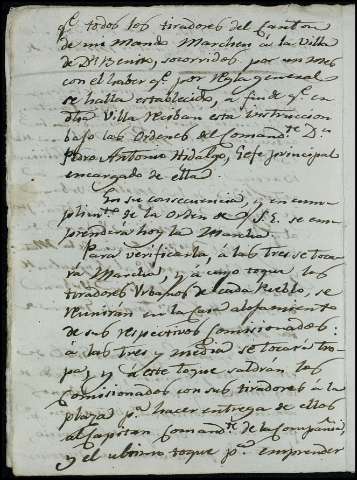 qe. todos los tiradores del Canton
de mi Mando Marchen á la Villa
de Dn. Benito, socorridos por un mes
con el haber qe. por regla general
se halla establecido, a fin de qe. en
dha Villa reciban esta instruccion
bajo las Ordenes del Comandte. Dn.
Pedro Antonio Hidalgo, Gefe principal
encargado de ella.
En su consecuencia, y en cum-
plimto. de la Orden de S.E. se em-
prendera hoy la Marcha.
Para verificarla, á las tres se toca-
ra Marcha, y a cuyo toque los
tiradores Urbanos de cada Pueblo, se
reuniran en la Casa alojamiento
de sus respectivos Comisionados:
á las tres y media se tocará tro-
pa, y a este toque saldran los
Comisionados con sus tiradores á la
plaza pa. hacer entrega de ellos
al Capitan Comandte. de la Compañia,
y el ultimo toque pa. emprender